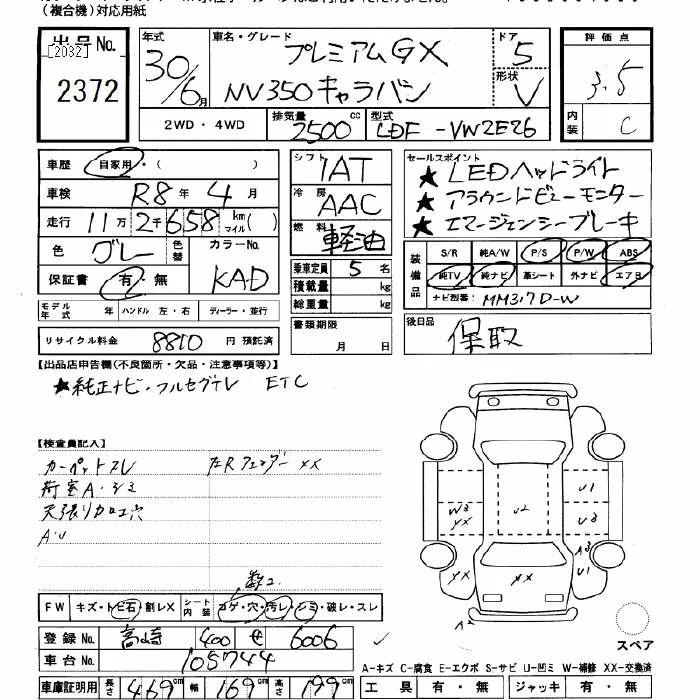 (複合機)対応用紙
出品 No. [2032] 2372
年式 30/6月
車名・グレード プレミアムGX
NV350キャラバン
ドア 5
形状 V
評価点 3.5
内装 C
2WD・4WD 排気量 2500 cc 型式 LDF-VW2E26
車歴 自家用・( )
車検 R8年 4月
走行 11万2千658 km マイル( )
色 グレー 色替 カラーNo. KAD
保証書 有・無
モデル年式 年 ハンドル 左・右 ディーラー・並行
リサイクル料金 8810 円 預託済
シフト IAT
冷房 AAC
燃料 軽油
乗車定員 5 名
積載量 kg
総重量 kg
書類期限
月 日
セールスポイント
★LEDヘッドライト
★アラウンドビューモニター
★エマージェンシーブレーキ
装備品 S/R 純A/W P/S P/W ABS
純TV 純ナビ 革シート 外ナビ エアB
ナビ型番: MM317D-W
後日品 保取
【出品店申告欄(不良箇所・欠品・注意事項等)】
★純正ナビ・フルセグTV ETC
【検査員記入】
カーペットスレ 左Rフェンダー XX
荷室A・シミ
天張り加工穴
A・U
FW キズ・トビ石・割レX シート内装 コゲ・穴・汚レ・シミ・破レ・スレ
登録 No. 高崎 400 せ 6006
車台 No. 105744
車庫証明用 長さ 469 cm 幅 169 cm 高さ 199 cm
W3 XX U2 U1 U3
XX XX A3 U1
A2
スペア
A-キズ C-腐食 E-エクボ S-サビ U-凹ミ W-補修 XX-交換済
工具 有・無 ジャッキ 有・無